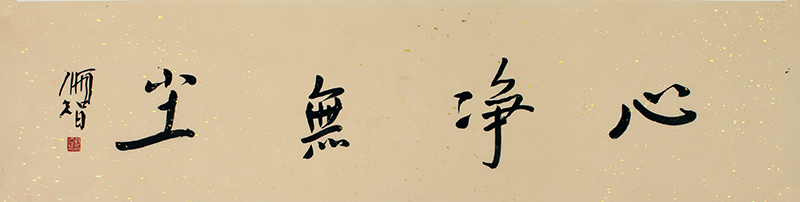 心净無尘
智